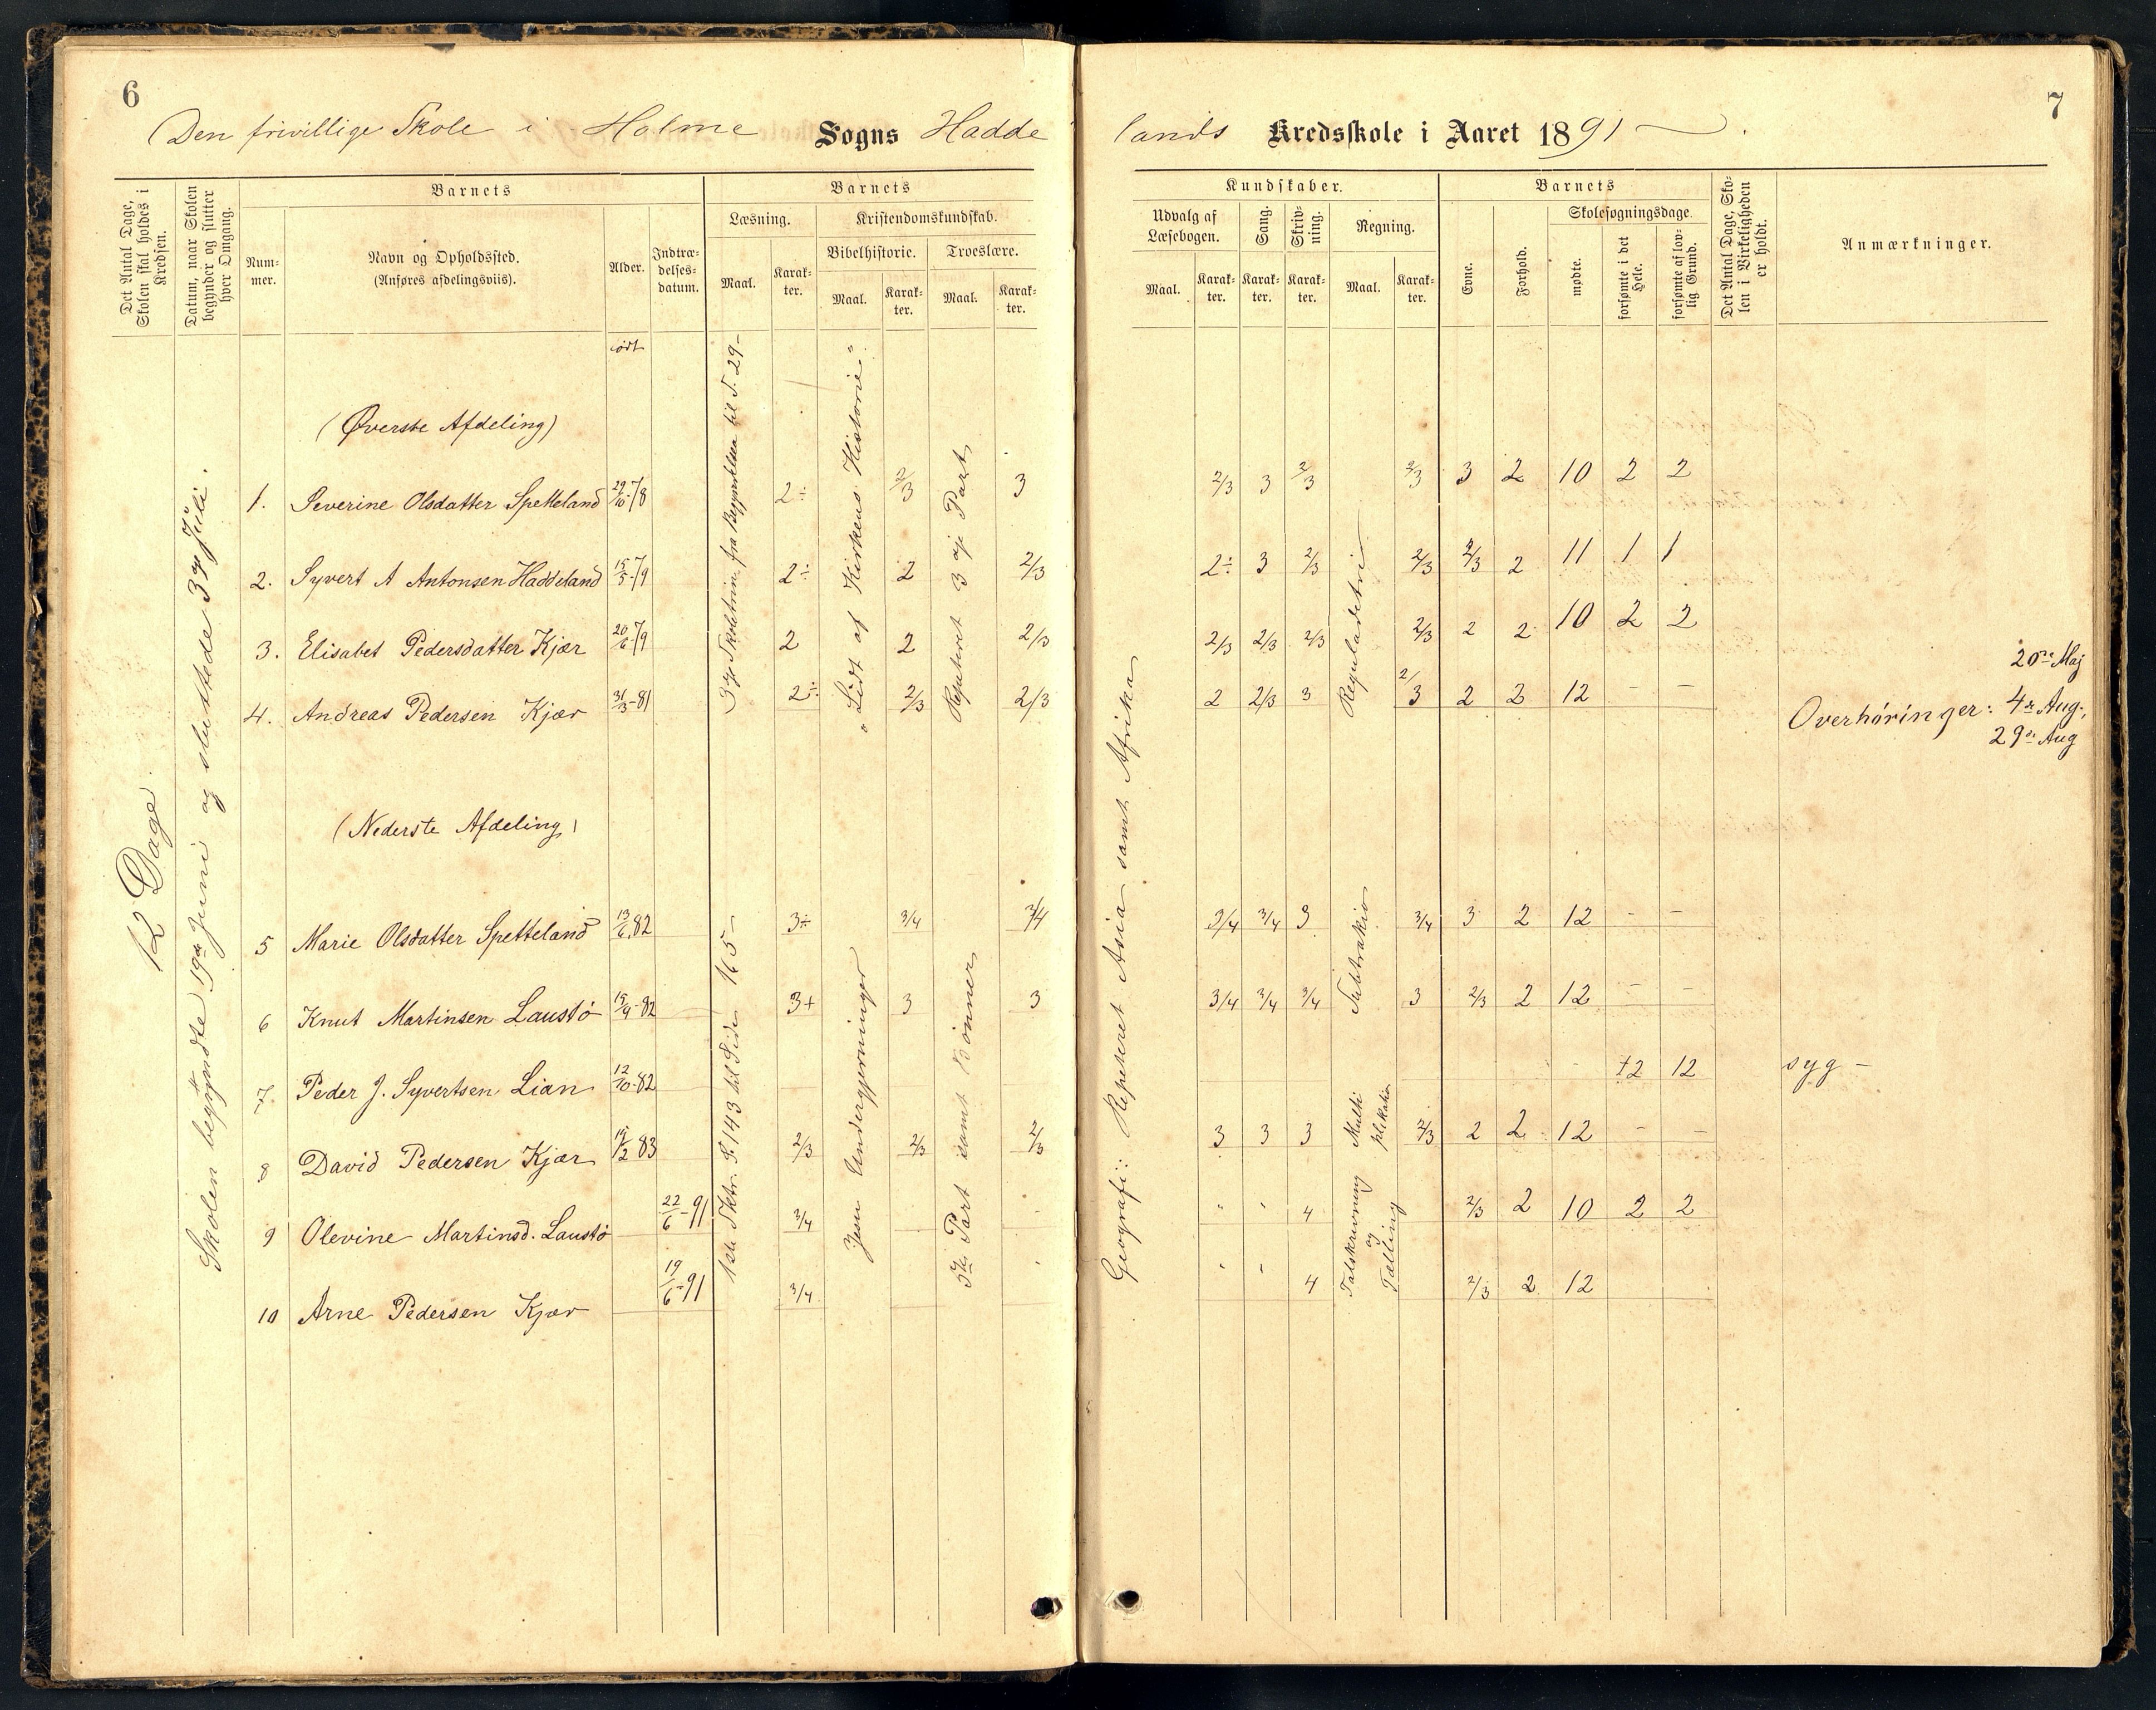 6
Den frivillige Skole i Holme Sogns Hadde
Det Antal Dage, Skolen skal holdes i Kredsen.
Datum, naar Skolen begynder og slutter hver Omgang.
Barnets
Num-
mer.
Navn og Opholdssted.
(Anføres afdelingsviis).
Alder.
Indtræ-
delses-
datum.
Barnets
Læsning.
Kristendomskundskab.
Maal.
Karak-
ter.
Bibelhistorie.
Troeslære.
Maal.
Karak-
ter.
Maal.
Karak-
ter.
født
12 Dage
Skolen begyndte 19de Juni og sluttede 3dje Juli.
(Øverste Afdeling)
1. Severine Olsdatter Spetteland 29/10-78 2÷ 2/3 3
2. Syvert A Antonsen Haddeland 15/5-79 2÷ 2 2/3
3. Elisabet Pedersdatter Kjær 20/6-79 2 2 2/3
4. Andreas Pedersen Kjær 31/3-81 2÷ 2/3 2/3
3dje Skoletrin fra Begyndelsen til S. 29-
"Lidt af Kirkens Historie"
Repeteret 3dje Part
(Nederste Afdeling)
5 Marie Olsdatter Spetteland 13/6 82 3÷ 3/4 3/4
6 Knut Martinsen Laustö 15/9-82 3+ 3 3
7. Peder J. Syvertsen Lian 12/10-82
8 David Pedersen Kjær 15/2 83 2/3 2/3 2/3
9 Olevine Martinsd. Laustö 22/6-91 3/4
10 Arne Pedersen Kjær 19/6-91 3/4
1ste Sktr. S. 143 til Side 165-
Jesu Undergjerninger
3die Part samt Bönner
7
lands Kredsskole i Aaret 1891
Kundskaber.
Udvalg af
Læsebogen.
Maal.
Karak-
ter.
Sang.
Karak-
ter.
Skriv-
ning.
Karak-
ter.
Regning.
Maal.
Karak-
ter.
Barnets
Evne.
Forhold.
Skolesøgningsdage.
mødte.
forsømte i det Hele.
forsømte af lov-
lig Grund.
Det Antal Dage, Sko-
len i Virkeligheden
er holdt.
Anmærkninger.
2/3 3 2/3 2/3 3 2 10 2 2
2÷ 3 2/3 2/3 2/3 2 11 1 1
2/3 2/3 2/3 2/3 2 2 10 2 2
2 2/3 3 2/3 2 2 12 - -
Reguladetri
20de Maj
Overhöringer: 4de Aug.,
29de Aug
Geografi: Repeteret Asia samt Afrika
3/4 3/4 3 3/4 3 2 12 - -
3/4 3/4 3/4 3 2/3 2 12 - -
Subtraktion
12 12 syg -
3 3 3 Multi
plikation 2/3 2 2 12 - -
4 2/3 2 10 2 2
4 2/3 2 12
Talskrivning
og
Tælling